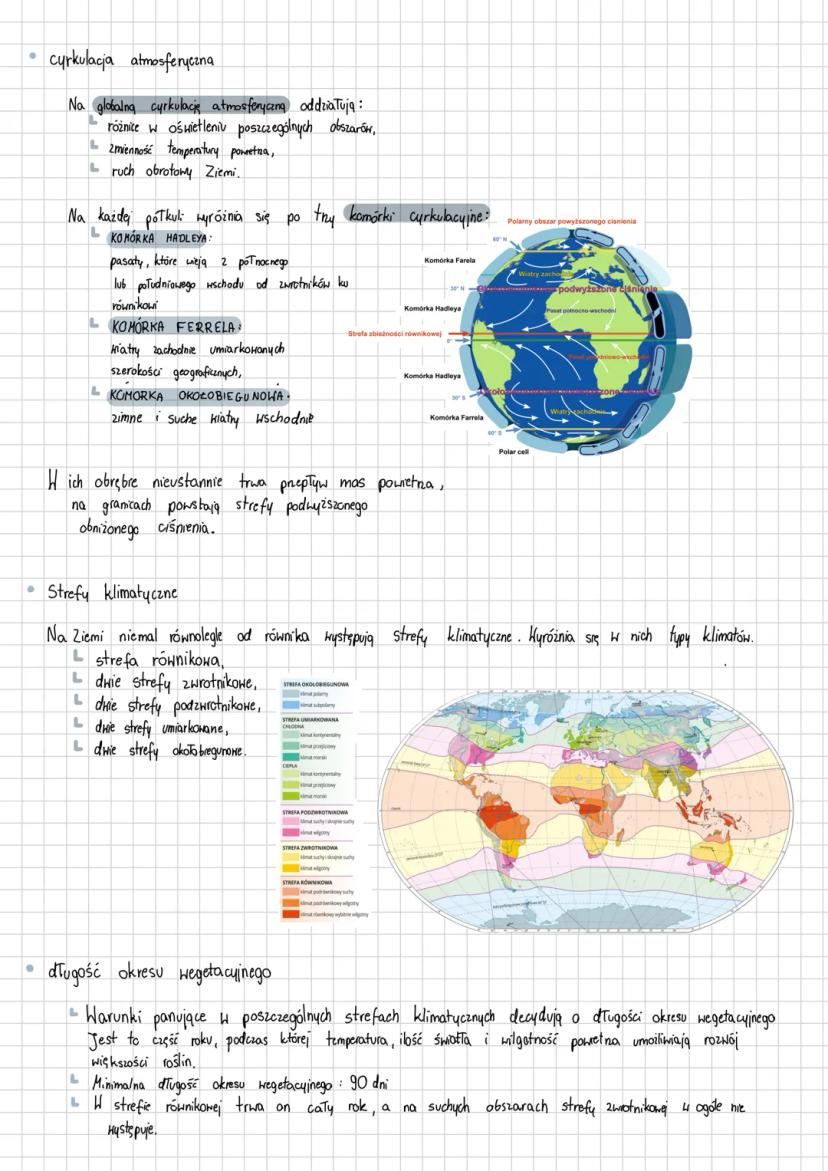 cyrkulacja atmosferyczna
Na globalną cyrkulację atmosferyczną oddziałują:
różnice w oświetleniu poszczególnych obszarów,
zmienność temperatury powietrza,
ruch obrotowy Ziemi.
Na każdej półkuli wyróżnia się po trzy komórki cyrkulacyjne:
KOMÓRKA HADLEYA:
pasaty, które wieją z północnego
lub południowego wschodu od zwrotników ku
równikowi
KOMÓRKA FERRELA:
wiatry zachodnie umiarkowanych
szerokości geograficznych,
KOMÓRKA OKOŁOBIEGUNOWA:
zimne i suche wiatry wschodnie
Polarny obszar powyższonego cisnienia
60° N
Komórka Farela
Wiatry zachodnie
30° N
podwyższone ciśnienie
Komórka Hadleya
Pasat północno-wschodni
Strefa zbieżności równikowej
0°
Pasat południowo-wschodni
Komórka Hadleya
30° S
Wiatry zachodnie
Komórka Farrela
60° S
Polar cell
W ich obrębre nieustannie trwa przepływ mas powietrza,
na granicach powstają strefy podwyższonego
obniżonego ciśnienia.
Strefy klimatyczne
Na Ziemi niemal równolegle od równika występują strefy klimatyczne. Wyróżnia się w nich typy klimatów.
strefa równikowa,
dwie strefy zwrotnikowe,
dwie strefy podzwrotnikowe,
dwie strefy umiarkowane,
dwie strefy okołobiegunowe.
STREFA OKOŁOBIEGUNOWA
klimat polarny
klimat subpolarny
STREFA UMIARKOWANA
CHŁODNA
klimat kontynentalny
klimat przejściowy
klimat morski
CIEPŁA
klimat kontynentalny
klimat przejściowy
klimat morski
STREFA PODZWROTNIKOWA
klimat suchy i skrajnie suchy
klimat wilgotny
STREFA ZWROTNIKOWA
klimat suchy i skrajnie suchy
klimat wilgotny
STREFA RÓWNIKOWA
klimat podrównikowy suchy
klimat podrównikowy wilgotny
klimat równikowy wybitnie wilgotny
długość okresu wegetacyjnego
Warunki panujące w poszczególnych strefach klimatycznych decydują o długości okresu wegetacyjnego
Jest to część roku, podczas której temperatura, ilość światła i wilgotność powietrza umożliwiają rozwój
większości roślin.
Minimalna długość okresu wegetacyjnego : 90 dni
W strefie równikowej trwa on cały rok, a na suchych obszarach strefy zwrotnikowej w ogóle nie
występuje.